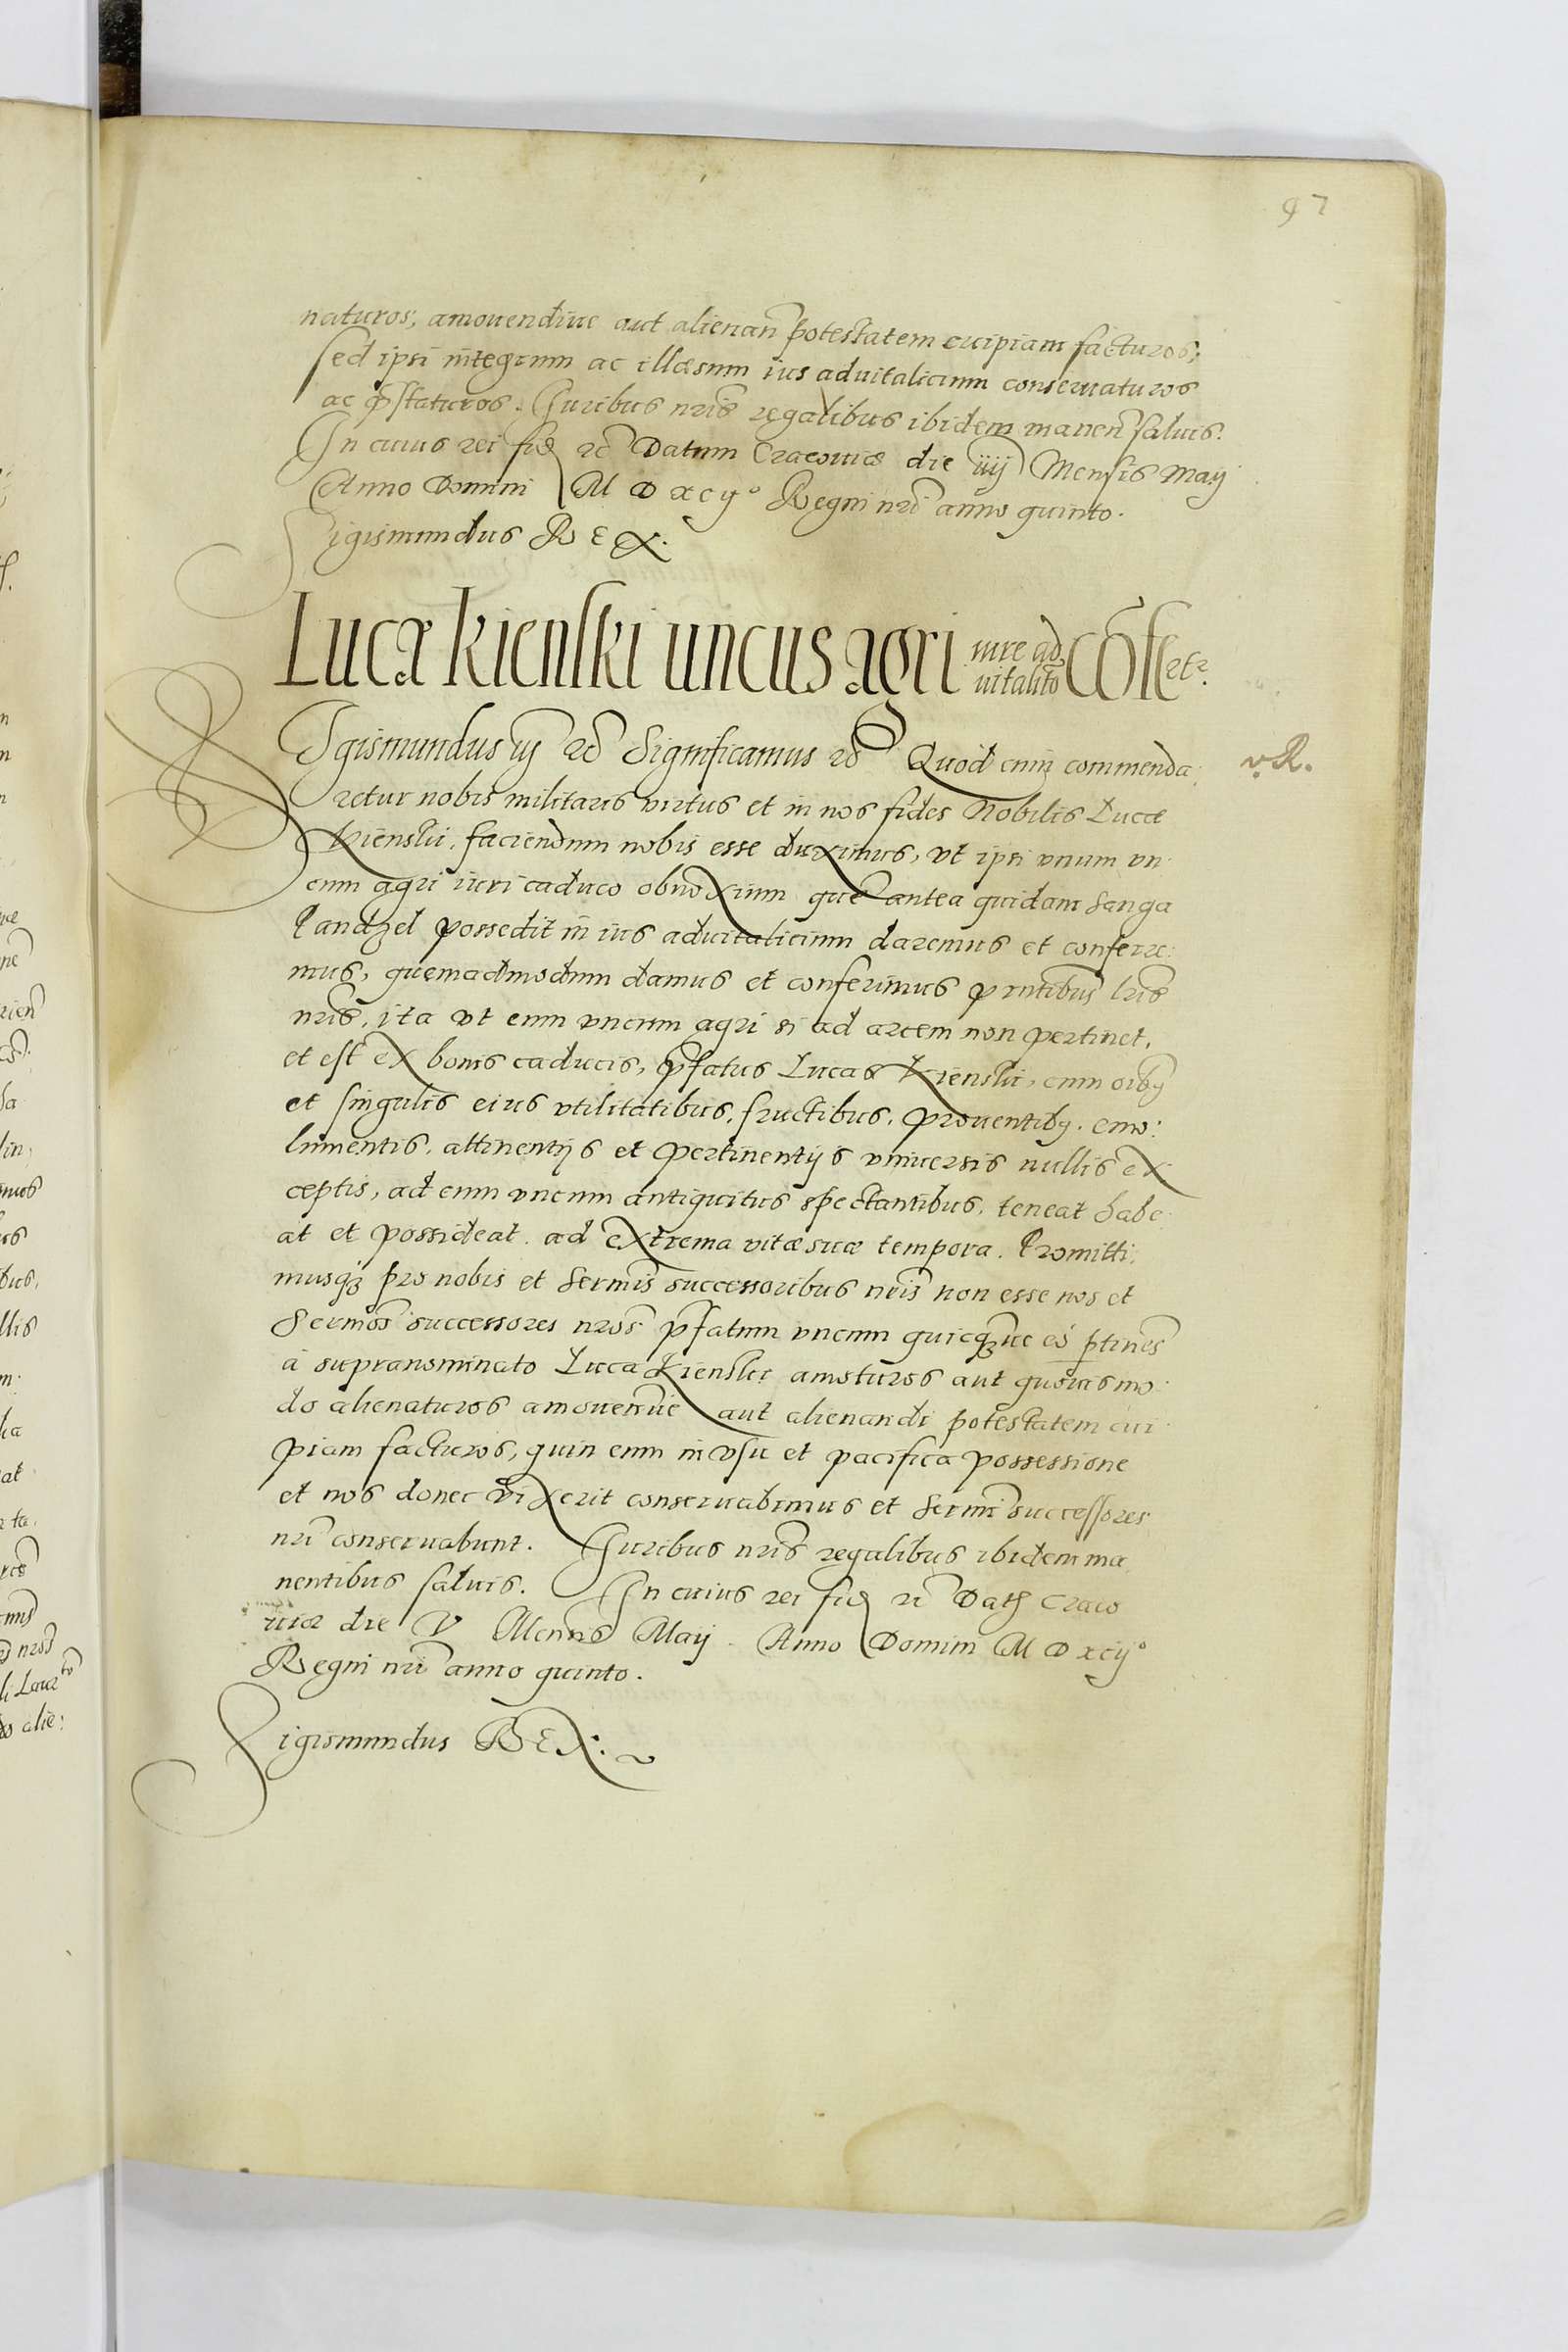 97
naturos, amouendiue aut alienan potestatem cuipiam facturos,
sed ipsi integrum ac illæsum ius aduitalicium conseruaturos
ac pstaturos. Iuribus nris regalibus ibidem manen saluis.
In cuius rei fid rc Datum Cracouiæ die iiij Mensis Maij
Anno Domini M D xcij° Regni nri anno quinto.
Sigismundus REX.
Lucæ Kienski uncus agri iure ad
uitalito cofertr.
Sigismundus iij rc Significamus rc Quod cum commenda
v. R.
retur nobis militaris virtus et in nos fides Nobilis Lucæ
Kienskii, faciendum nobis esse duximus, vt ipsi vnum vn
cum agri iuri caduco obnoxium que antea quidam Sanga
Pandzel possedit in ius aduitalicium daremus et conferre
mus, quemadmodum damus et conferimus pntibus lris
nris, ita vt eum vncum agri si ad arcem non pertinet,
et est ex bonis caducis, pfatus Lucas Kienskii, cum oibq
et singulis eius vtilitatibus, fructibus, prouentibq. emo:
lumentis, attinentijs et pertinentijs vniuersis nullis ex
ceptis, ad eum vncum antiquitus spectantibus, teneat habe
at et possideat ad extrema vitæ suæ tempora. Promitti
musq3 pro nobis et Sermis successoribus nris non esse nos et
Sermos successores nros pfatum vncum quicq3ue eo ptines
a supranominato Luca Kienskii amoturos aut quouis mo
do alienaturos amouenue aut alienandi potestatem cui
piam facturos, quin eum in vsu et pacifica possessione
et nos donec vixerit conseruabimus et Sermi successores
nri conseruabunt. Iuribus nris regalibus ibidem ma
nentibus saluis. In cuius rei fid rc Dat Craco
uiæ die V Mensis Maij. Anno Domini M D xcij°
Regni nri anno quinto.
Sigismundus REX.